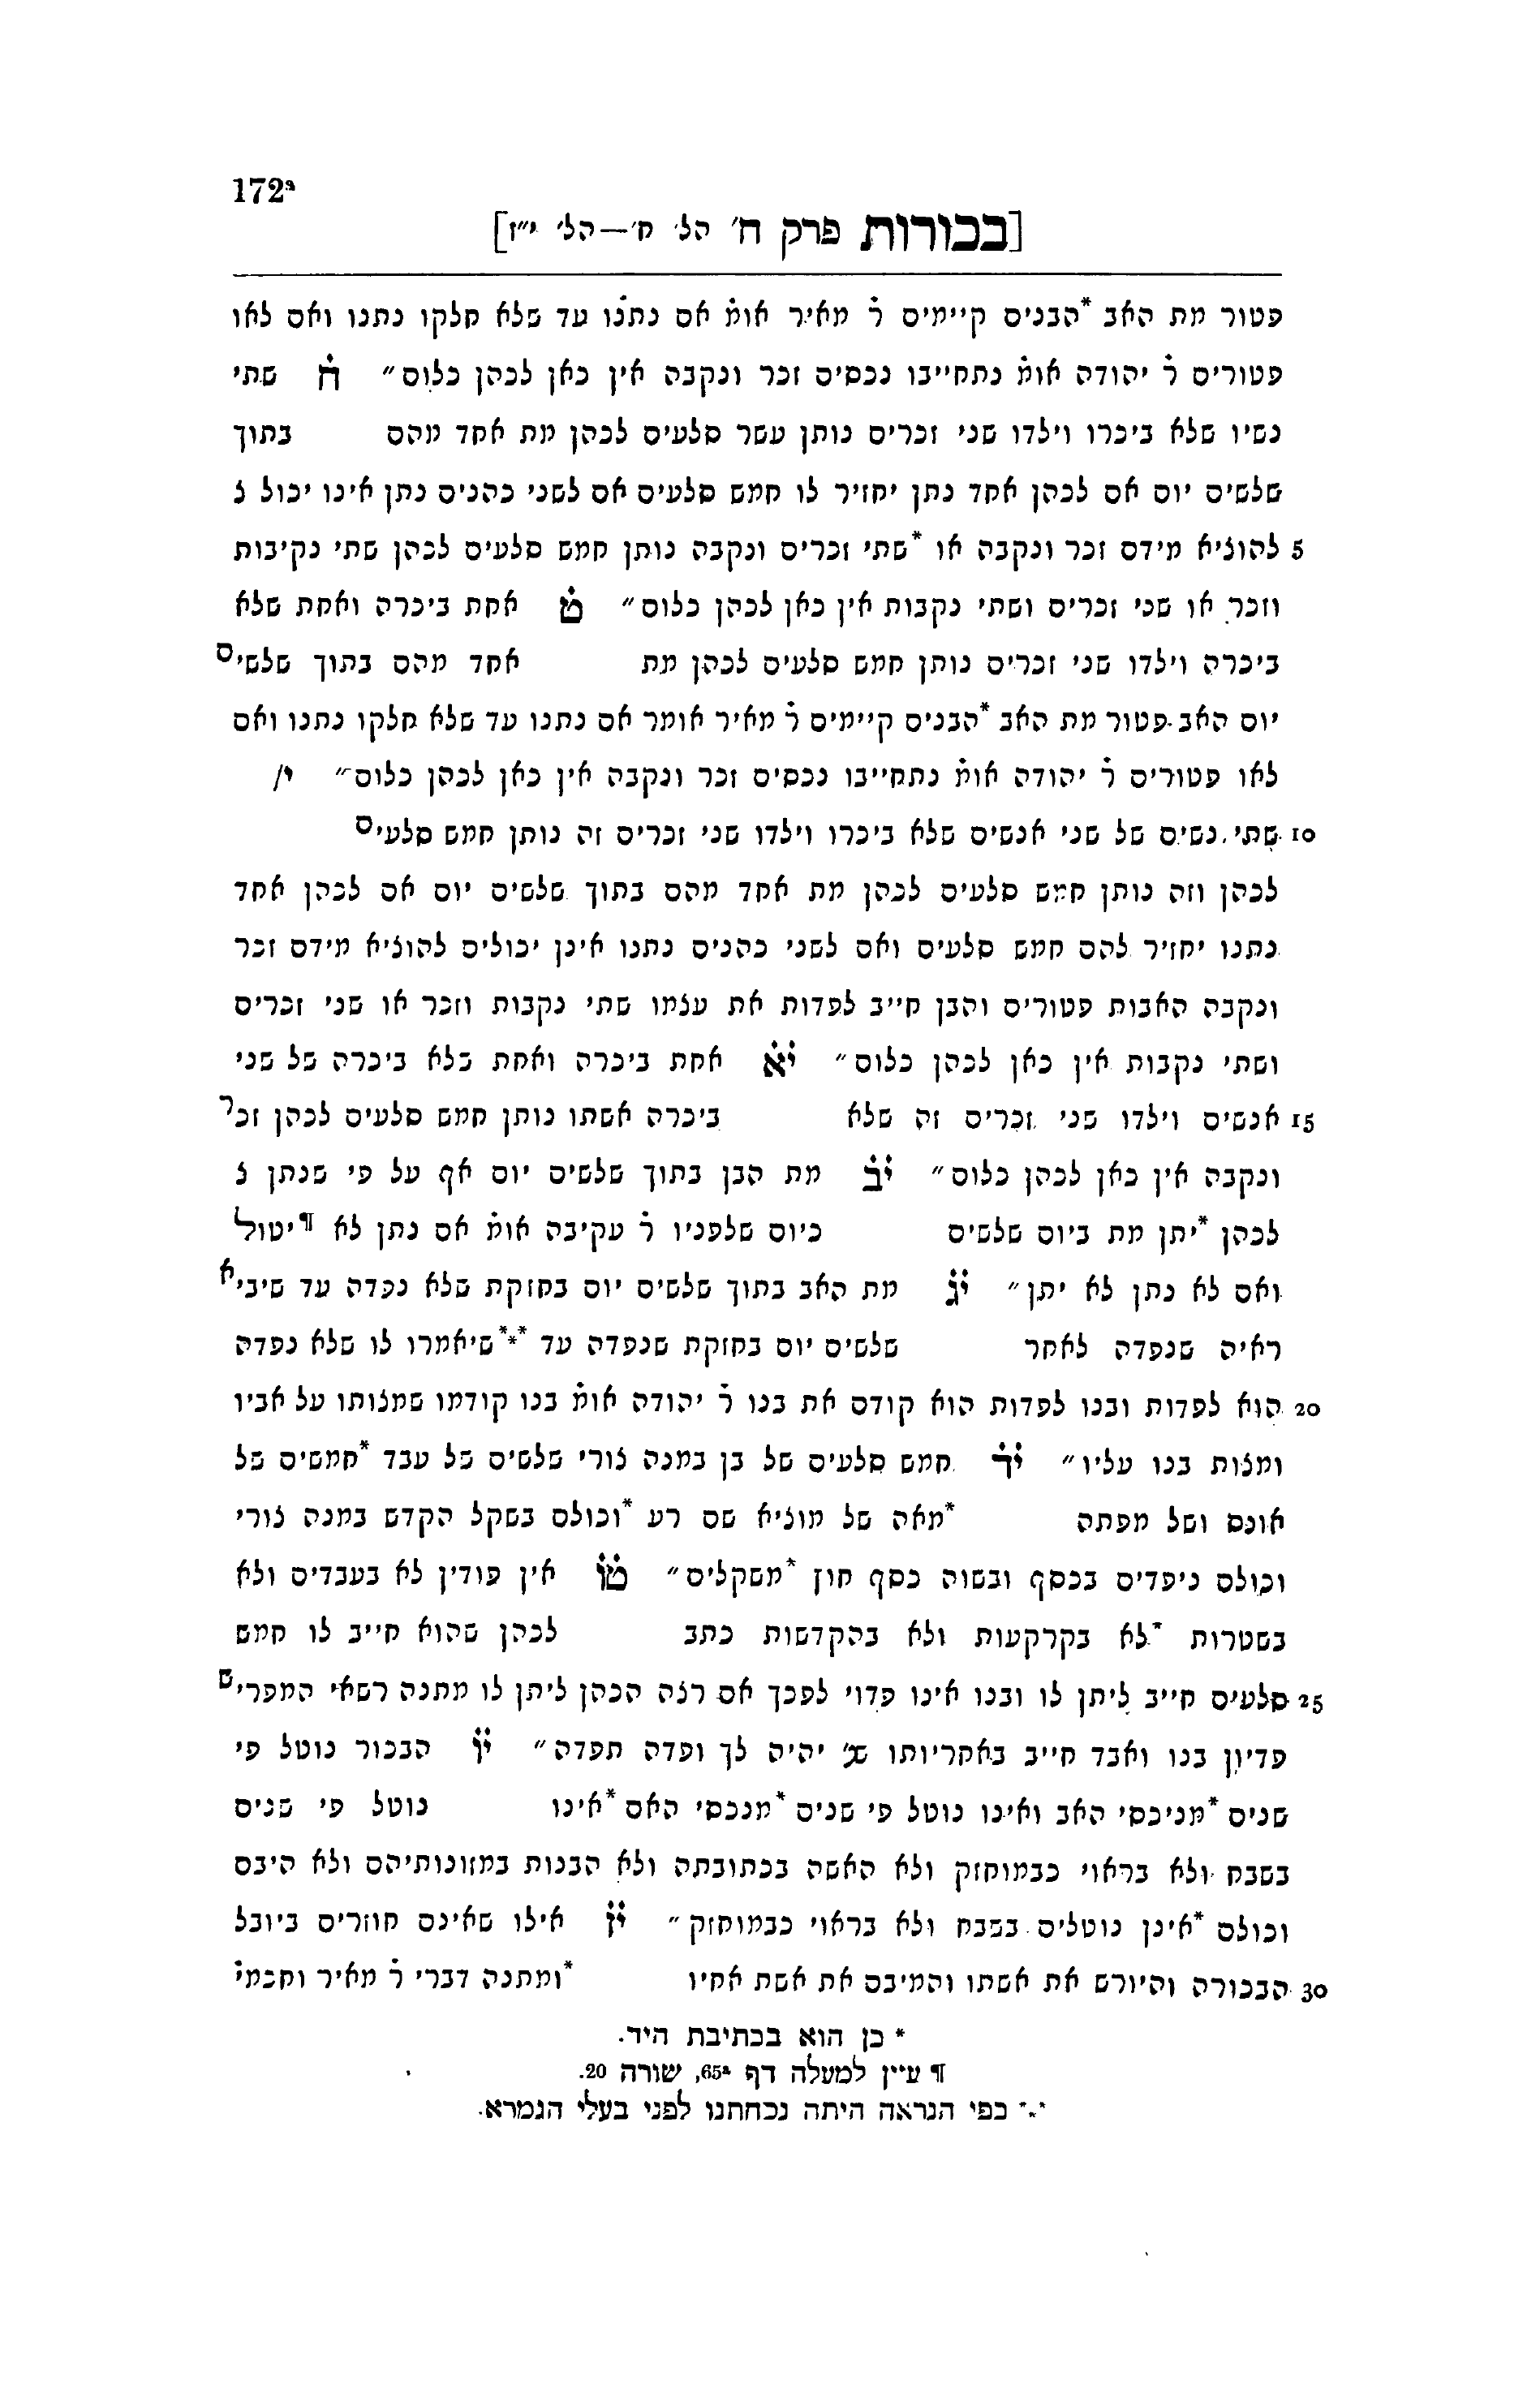 172ᵃ
[בכורות פרק ח׳ הל׳ ח׳—הל׳ י״ז]
פטור מת האב *הבנים קיימים ר̇ מאיר אומ̇ אם נתנו עד שלא חלקו נתנו ואם לאו
פטורים ר̇ יהודה אומ̇ נתחייבו נכסים זכר ונקבה אין כאן לכהן כלום״ ח̇ שתי
נשיו שלא ביכרו וילדו שני זכרים נותן עשר סלעים לכהן מת אחד מהם בתוך
שלשים יום אם לכהן אחד נתן יחזיר לו חמש סלעים אם לשני כהנים נתן אינו יכול צ
5 להוציא מידם זכר ונקבה או *שתי זכרים ונקבה נותן חמש סלעים לכהן שתי נקיבות
וזכר או שני זכרים ושתי נקבות אין כאן לכהן כלום״ ט̇ אחת ביכרה ואחת שלא
ביכרה וילדו שני זכרים נותן חמש סלעים לכהן מת אחד מהם בתוך שלשים
יום האב פטור מת האב *הבנים קיימים ר̇ מאיר אומר אם נתנו עד שלא חלקו נתנו ואם
לאו פטורים ר̇ יהודה אומ̇ נתחייבו נכסים זכר ונקבה אין כאן לכהן כלום״ י/
10 שתי נשים של שני אנשים שלא ביכרו וילדו שני זכרים זה נותן חמש סלעים
לכהן וזה נותן חמש סלעים לכהן מת אחד מהם בתוך שלשים יום אם לכהן אחד
נתנו יחזיר להם חמש סלעים ואם לשני כהנים נתנו אינן יכולים להוציא מידם זכר
ונקבה האבות פטורים והבן חייב לפדות את עצמו שתי נקבות וזכר או שני זכרים
ושתי נקבות אין כאן לכהן כלום״ י̇א̇ אחת ביכרה ואחת שלא ביכרה של שני
15 אנשים וילדו שני זכרים זה שלא ביכרה אשתו נותן חמש סלעים לכהן זכר
ונקבה אין כאן לכהן כלום״ י̇ב̇ מת הבן בתוך שלשים יום אף על פי שנתן צ
לכהן *יתן מת ביום שלשים כיום שלפניו ר̇ עקיבה אומ̇ אם נתן לא ¶יטול
ואם לא נתן לא יתן״ י̇ג̇ מת האב בתוך שלשים יום בחזקת שלא נפדה עד שיביא
ראיה שנפדה לאחר שלשים יום בחזקת שנפדה עד *⁎*שיאמרו לו שלא נפדה
20 הוא לפדות ובנו לפדות הוא קודם את בנו ר̇ יהודה אומ̇ בנו קודמו שמצותו על אביו
ומצות בנו עליו״ י̇ד̇ חמש סלעים של בן במנה צורי שלשים של עבד *חמשים של
אונס ושל מפתה *מאה של מוציא שם רע *וכולם בשקל הקדש במנה צורי
וכולם ניפדים בכסף ובשוה כסף חוץ *משקלים״ ט̇ו̇ אין פודין לא בעבדים ולא
בשטרות *לא בקרקעות ולא בהקדשות כתב לכהן שהוא חייב לו חמש
25 סלעים חייב ליתן לו ובנו אינו פדוי לפכך אם רצה הכהן ליתן לו מתנה רשאי המפריש
פדיון בנו ואבד חייב באחריותו שנ׳ יהיה לך ופדה תפדה״ י̇ו̇ הבכור נוטל פי
שנים *מניכסי האב ואינו נוטל פי שנים *מנכסי האם *אינו נוטל פי שנים
בשבח ולא בראוי כבמוחזק ולא האשה בכתובתה ולא הבנות במזונותיהם ולא היבם
וכולם *אינן נוטלים בשבח ולא בראוי כבמוחזק״ י̇ז̇ אילו שאינם חוזרים ביובל
30 הבכורה והיורש את אשתו והמיבם את אשת אחיו *ומתנה דברי ר̇ מאיר וחכמי̇
* כן הוא בכתיבת היד.
¶ עיין למעלה דף 65ᵃ, שורה 20.
*⁎* כפי הנראה היתה נכחתנו לפני בעלי הגמרא.